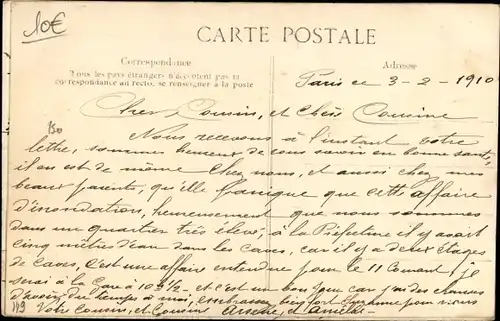 10€
CARTE POSTALE
Correspondance
Tous les pays étrangers n'acceptent pas la
correspondance au recto, se renseigner à la poste
Adresse
Paris ce 3-2-1910
Cher Cousin, et Chère Cousine
150
Nous recevons à l'instant votre
lettre, sommes heureux de vous savoir en bonne santé,
il en est de même chez nous, et aussi chez mes
beaux parents, qu'elle panique que cette affaire
d'inondation, heureusement que nous sommes
dans un quartier très élevé, à la Préfecture il y avait
cinq mètres d'eau dans les caves, car il y a deux étages
de caves, C'est une affaire entendue pour le 11 Courant, je
serai à la Gare à 10 3/2 et c'est un bon jour car j'ai des chances
d'avoir du temps à moi, embrassez bien fort pour nous
Votre Cousin, et Cousine Arsène, et Amélie
149